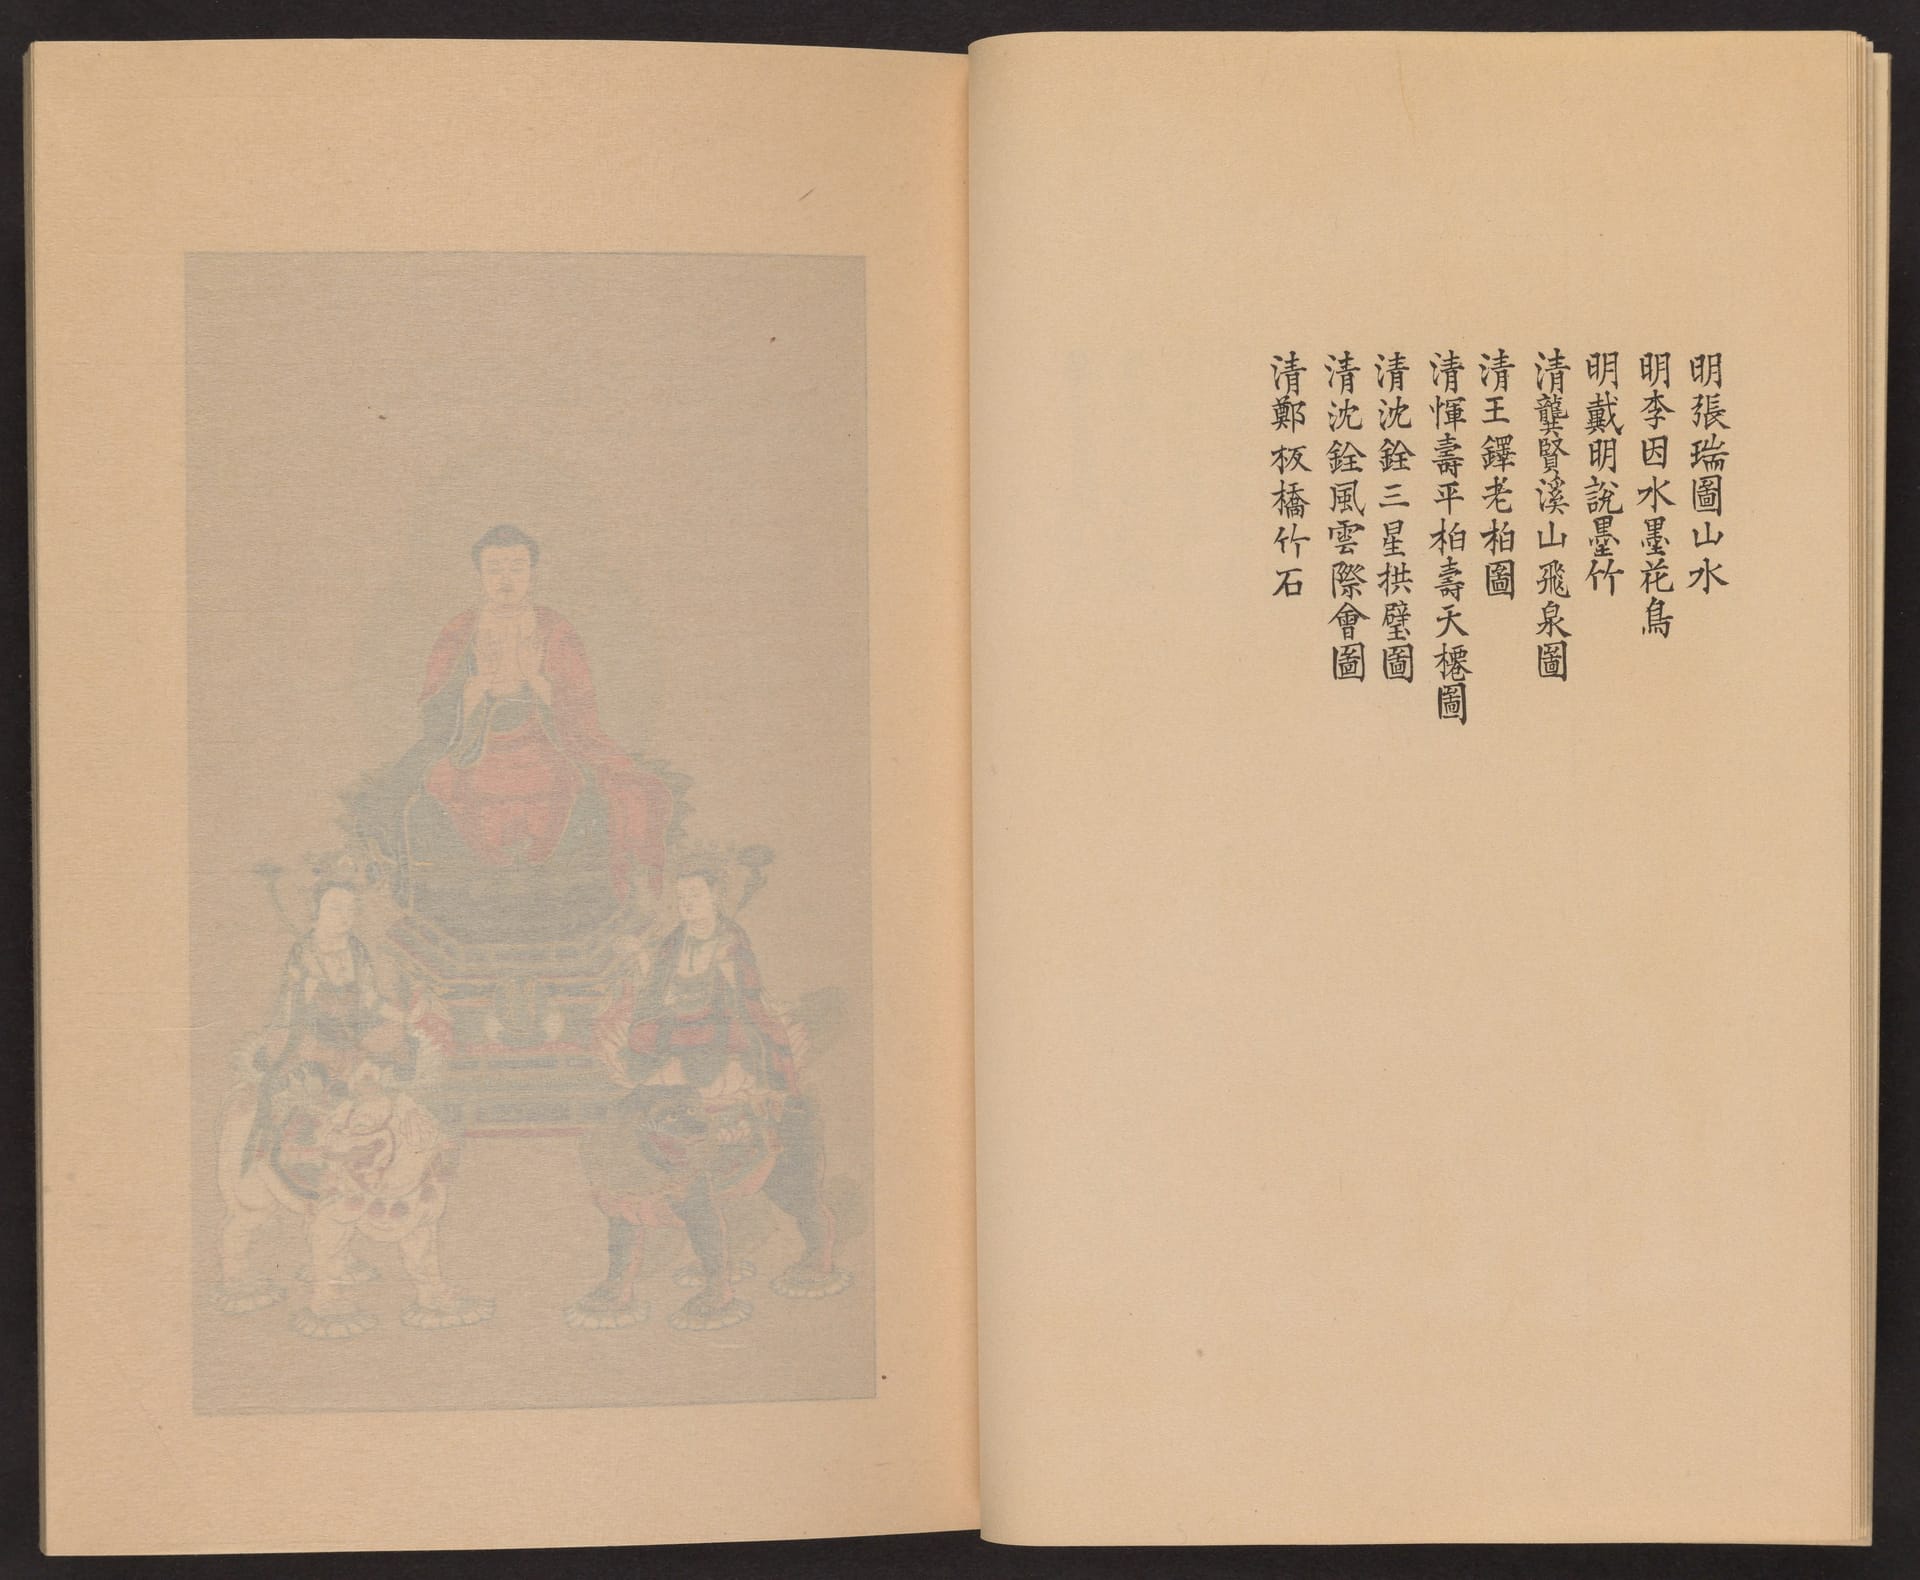 明張瑞圖山水
明李因水墨花鳥
明戴明說墨竹
清龔賢溪山飛泉圖
清王鐸老柏圖
清惲壽平柏壽天櫏圖
清沈銓三星拱璧圖
清沈銓風雲際會圖
清鄭板橋竹石